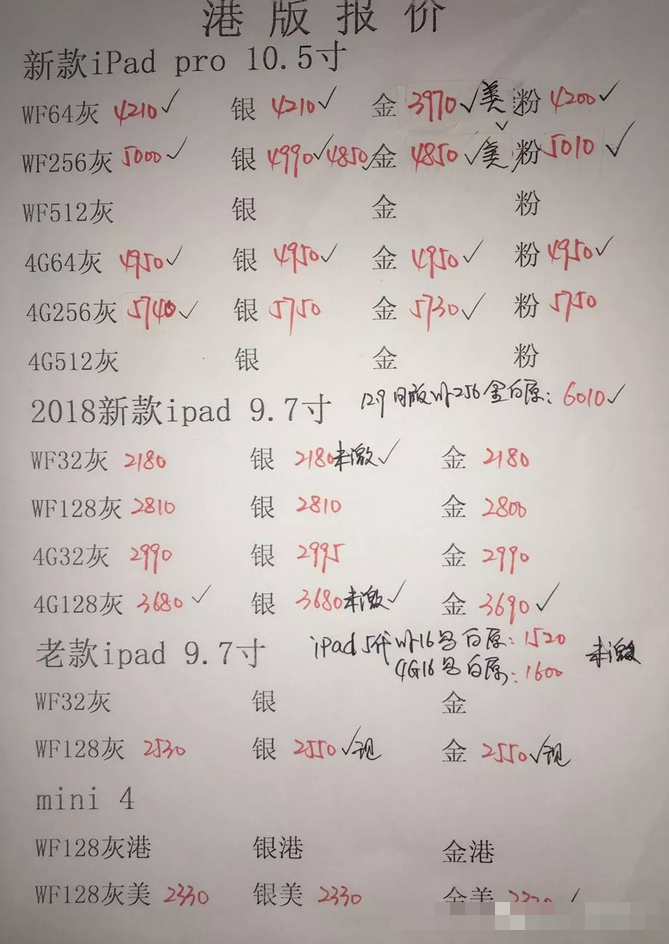 港版报价
新款iPad pro 10.5寸
WF64灰 4210✓ 银 4210✓ 金 3970✓美 粉 4200✓
WF256灰 5000✓ 银 4990✓4850 金 4850✓美 粉 5010✓
WF512灰 银 金 粉
4G64灰 4950✓ 银 4950✓ 金 4950✓ 粉 4950✓
4G256灰 5740✓ 银 5750 金 5730✓ 粉 5750
4G512灰 银 金 粉
2018新款ipad 9.7寸 12.9 国版Wf-256金白原：6010✓
WF32灰 2180 银 2180未激✓ 金 2180
WF128灰 2810 银 2810 金 2800
4G32灰 2990 银 2995 金 2990
4G128灰 3680✓ 银 3680未激✓ 金 3690✓
老款ipad 9.7寸 ipad 5代 Wf-16 白原：1520 未激
4G16 白原：1600
WF32灰 银 金
WF128灰 2530 银 2550✓现 金 2550✓现
mini 4
WF128灰港 银港 金港
WF128灰美 2330 银美 2330 金美